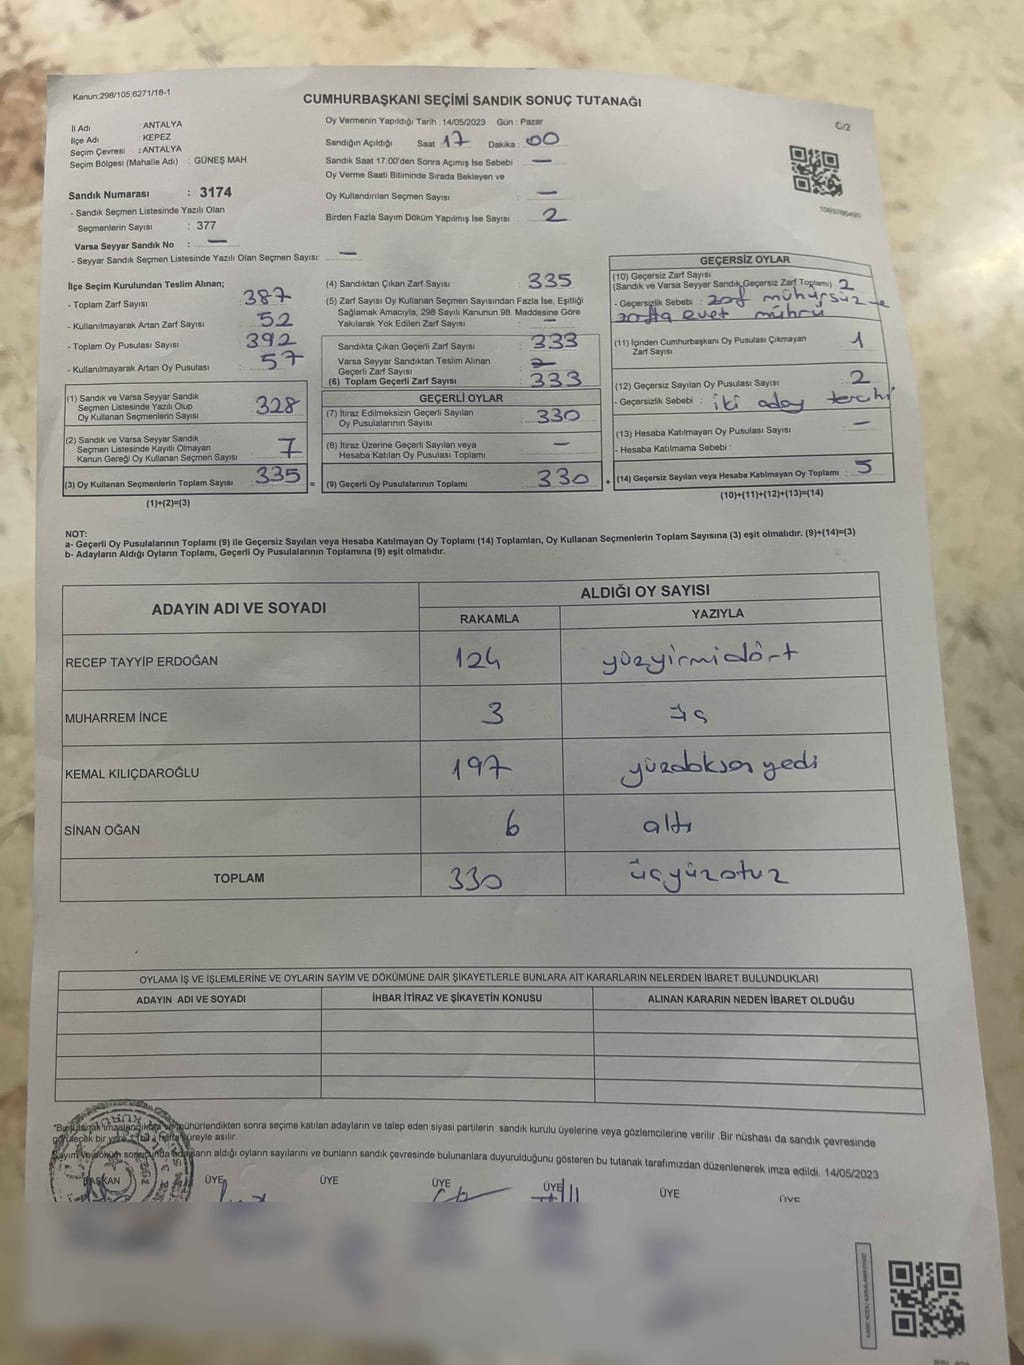 Kanun:298/105,6271/18-1
CUMHURBAŞKANI SEÇİMİ SANDIK SONUÇ TUTANAĞI
C/2
İl Adı : ANTALYA
İlçe Adı : KEPEZ
Seçim Çevresi : ANTALYA
Seçim Bölgesi (Mahalle Adı) : GÜNEŞ MAH.
Oy Vermenin Yapıldığı Tarih : 14/05/2023 Gün : Pazar
Sandığın Açıldığı Saat : 17 Dakika : 00
Sandık Saat 17:00'den Sonra Açımış İse Sebebi : —
Oy Verme Saati Bitiminde Sırada Bekleyen ve
Oy Kullandırılan Seçmen Sayısı : —
Birden Fazla Sayım Döküm Yapılmış İse Sayısı : 2
Sandık Numarası : 3174
- Sandık Seçmen Listesinde Yazılı Olan
Seçmenlerin Sayısı : 377
Varsa Seyyar Sandık No : —
- Seyyar Sandık Seçmen Listesinde Yazılı Olan Seçmen Sayısı: —
İlçe Seçim Kurulundan Teslim Alınan;
- Toplam Zarf Sayısı : 387
- Kullanılmayarak Artan Zarf Sayısı : 52
- Toplam Oy Pusulası Sayısı : 392
- Kullanılmayarak Artan Oy Pusulası : 57
(1) Sandık ve Varsa Seyyar Sandık
Seçmen Listesinde Yazılı Olup
Oy Kullanan Seçmenlerin Sayısı : 328
(2) Sandık ve Varsa Seyyar Sandık
Seçmen Listesinde Kayıtlı Olmayan
Kanun Gereği Oy Kullanan Seçmen Sayısı : 7
(3) Oy Kullanan Seçmenlerin Toplam Sayısı : 335 =
(1)+(2)=(3)
(4) Sandıktan Çıkan Zarf Sayısı : 335
(5) Zarf Sayısı Oy Kullanan Seçmen Sayısından Fazla İse, Eşitliği
Sağlamak Amacıyla, 298 Sayılı Kanunun 98. Maddesine Göre
Yakılarak Yok Edilen Zarf Sayısı : —
Sandıkta Çıkan Geçerli Zarf Sayısı : 333
Varsa Seyyar Sandıktan Teslim Alınan
Geçerli Zarf Sayısı :
(6) Toplam Geçerli Zarf Sayısı : 333
GEÇERLİ OYLAR
(7) İtiraz Edilmeksizin Geçerli Sayılan
Oy Pusulalarının Sayısı : 330
(8) İtiraz Üzerine Geçerli Sayılan veya
Hesaba Katılan Oy Pusulası Toplamı : —
(9) Geçerli Oy Pusulalarının Toplamı : 330 +
GEÇERSİZ OYLAR
(10) Geçersiz Zarf Sayısı
(Sandık ve Varsa Seyyar Sandık Geçersiz Zarf Toplamı) 2
- Geçersizlik Sebebi : zarf mühürsüz ve
zarfta evet mührü
(11) İçinden Cumhurbaşkanı Oy Pusulası Çıkmayan
Zarf Sayısı : 1
(12) Geçersiz Sayılan Oy Pusulası Sayısı : 2
- Geçersizlik Sebebi : iki aday tercihi
(13) Hesaba Katılmayan Oy Pusulası Sayısı : —
- Hesaba Katılmama Sebebi :
(14) Geçersiz Sayılan veya Hesaba Katılmayan Oy Toplamı : 5
(10)+(11)+(12)+(13)=(14)
NOT:
a- Geçerli Oy Pusulalarının Toplamı (9) ile Geçersiz Sayılan veya Hesaba Katılmayan Oy Toplamı (14) Toplamları, Oy Kullanan Seçmenlerin Toplam Sayısına (3) eşit olmalıdır. (9)+(14)=(3)
b- Adayların Aldığı Oyların Toplamı, Geçerli Oy Pusulalarının Toplamına (9) eşit olmalıdır.
ADAYIN ADI VE SOYADI
ALDIĞI OY SAYISI
RAKAMLA YAZIYLA
RECEP TAYYİP ERDOĞAN 124 yüzyirmidört
MUHARREM İNCE 3 üç
KEMAL KILIÇDAROĞLU 197 yüzdoksan yedi
SİNAN OĞAN 6 altı
TOPLAM 330 üçyüzotuz
OYLAMA İŞ VE İŞLEMLERİNE VE OYLARIN SAYIM VE DÖKÜMÜNE DAİR ŞİKAYETLERLE BUNLARA AİT KARARLARIN NELERDEN İBARET BULUNDUKLARI
ADAYIN ADI VE SOYADI İHBAR İTİRAZ VE ŞİKAYETİN KONUSU ALINAN KARARIN NEDEN İBARET OLDUĞU
"Bu tutanak imzalandıktan ve mühürlendikten sonra seçime katılan adayların ve talep eden siyasi partilerin sandık kurulu üyelerine veya gözlemcilerine verilir .Bir nüshası da sandık çevresinde
görülecek bir yere 1 hafta süreyle asılır.
Sayım ve döküm sonucunda adayların aldığı oyların sayılarını ve bunların sandık çevresinde bulunanlara duyurulduğunu gösteren bu tutanak tarafımızdan düzenlenerek imza edildi. 14/05/2023
BAŞKAN ÜYE ÜYE ÜYE ÜYE ÜYE ÜYE